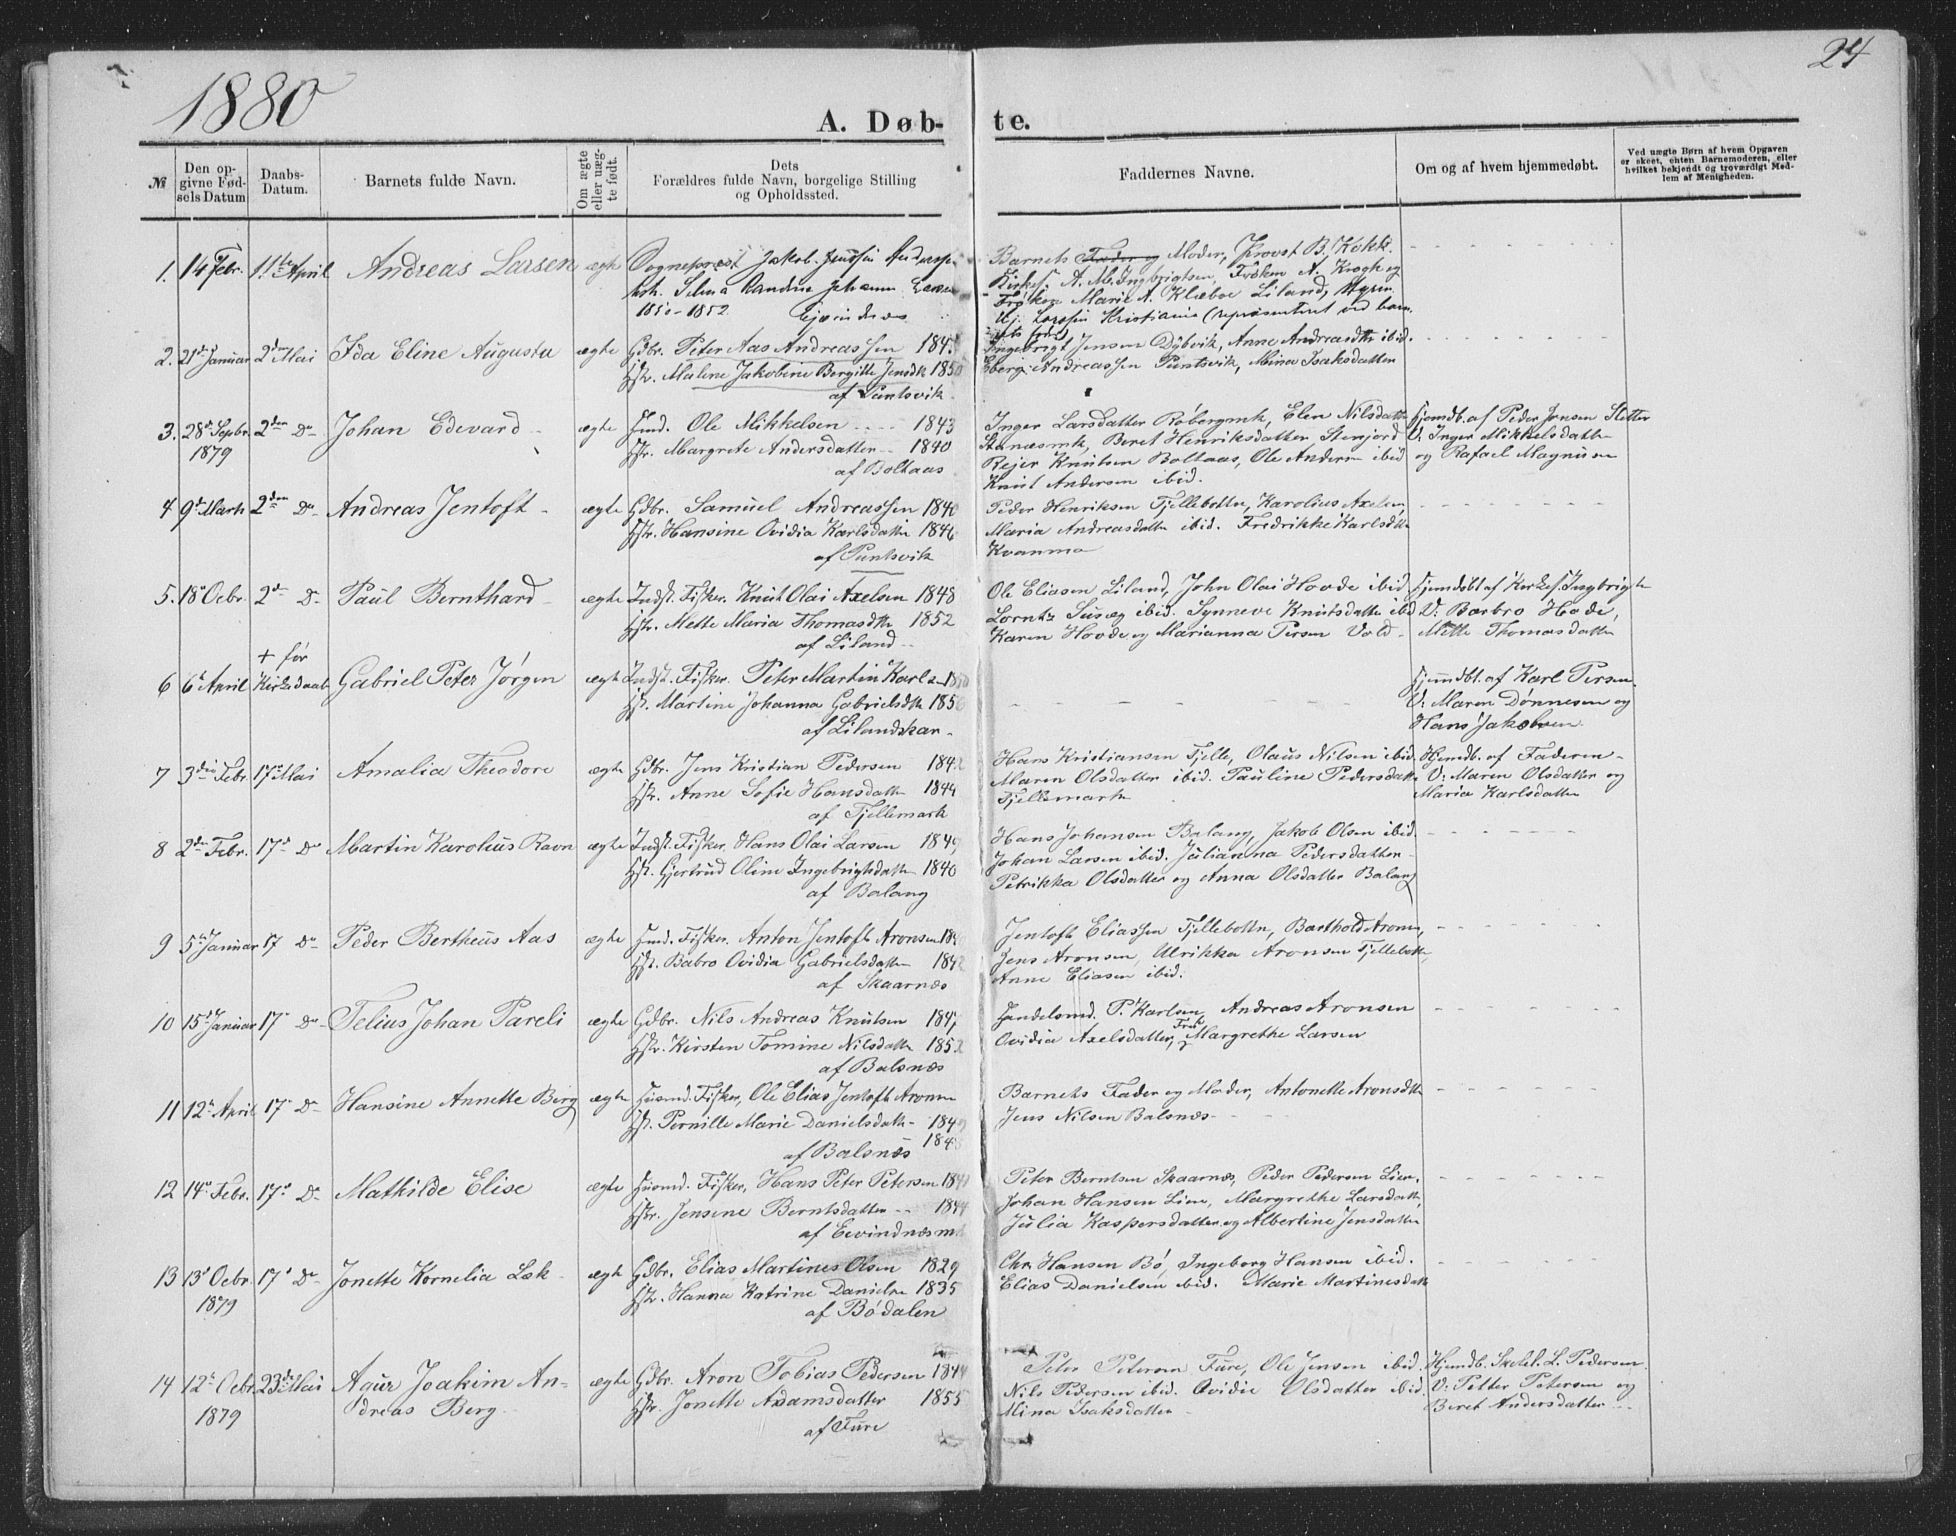 1880
24
A. Døb-
te.
№
Den op-
givne Fød-
sels Datum
Daabs-
Datum.
Barnets fulde Navn.
Om ægte
eller uæg-
te født.
Dets
Forældres fulde Navn, borgelige Stilling
og Opholdssted.
Faddernes Navne.
Om og af hvem hjemmedøbt.
Ved uægte Børn af hvem Opgaven
er skeet, enten Barnemoderen, eller
hvilket bekjendt og troværdigt Med-
lem af Menigheden.
1. 14 Febr. 11te April Andreas Larsen ægte Sogneprest Jakob
1850-1852
Barnets Fader og Moder, Provst B. Kokk.
Kirkes. A. M. Ingbrigtsen, Frøken A. Krogh og
Frøken Marie A. Klæboe Liland,
Kristiania (repræsenteret ved barn
ets fader)
2. 21de Januar 2den Mai Ida Eline Augusta ægte Gdbr. Peter Aas Andreassen
Hstr. Malene Jakobine Bergitte Jensdtr
af Puntsvik
Ingebrigt Jensen Dybvik, Anne Andreasdtr ibid.
Eberg Andreassen Puntsvik, Mina Isaksdatter
3. 28de Sepbr. 2den Do Johan Edevard ægte Hmd. Ole Mikkelsen 1843
1879
Hstr. Margrete Andersdatter 1840
af Boltaas
Inger Larsdatter Røbergmk, Elen Nilsdatter
Stenæsmk, Beret Henriksdatter Stenjord
Rejer Knutsen Boltaas, Ole Andersen ibid
Knut Andersen ibid.
Hjemdb. af Peder Jensen Sletter
V: Inger Mikkelsdatter
og Rafael Magnusen
4 9de Marts 2den Do Andreas Jentoft ægte Gdbr. Samuel Andreassen 1840
Hstr. Hansine Ovidia Karlsdatter 1846
af Puntsvik
Peder Henriksen Fjellebotn, Karolius Axelsen
Maria Andreasdatter ibid. Fredrikke Karlsdtr
Kvanmo
5. 18de Ocbr. 2den Do Paul Bernthard ægte Indst. Fisker. Knut Olai Axelsen 1848
Hstr. Mette Maria Thomasdtr 1852
af Liland
Ole Eliasen Liland, John Olai Hovde ibid
Lorntz Susæg ibid. Synneve Knutsdatter ibid
Karen Hovde og Marianna Persen Vold
Hjemdbt af Kirkes. Ingbrigts
V: Barbro Hovde,
Mette Thomasdatter
+ før
6 6te April Kirkedaab Gabriel Peter Jørgen ægte Indst. Fisker. Peter Martin Karlsen
Hstr. Martine Johanna Gabrielsdtr 1856
af Lilandskar
Hjemdbt. af Karl Persen.
V: Maren Dønnesen og
Hans Jakobsen
7 3die Febr. 17de Mai Amalia Theodore ægte Gdbr. Jens Kristian Pedersen 1842
Hstr. Anne Sofie Hansdatter 1844
af Fjellemark
Hans Kristiansen Fjelle, Olaus Nilsen ibid.
Maren Olsdatter ibid. Pauline Pedersdatter
Fjellemark
Hjemdb. af Faderen
V: Maren Olsdatter og
Maria Karlsdatter
8 2den Febr. 17de Do Martin Karolius Ravn ægte Indst. Fisker. Hans Olai Larsen 1849
Hstr. Gjertrud Oline Ingebrigtsdatter 1840
af Balang
Hans Johansen Balang, Jakob Olsen ibid.
Johan Larsen ibid. Julianna Pedersdatter
Petrikka Olsdatter og Anna Olsdatter Balang
9 5te Januar 17 Do Peder Bertheus Aas ægte Hmd. Fisker. Anton Jentoft Aronsen
Hstr. Babro Ovidia Gabrielsdatter 1842
af Skaarnæs
Jentoft Eliassen Fjellebotn, Barthold Aronsen,
Jens Aronsen, Ulrikka Aronsen Fjellebotn,
Anne Eliasen ibid.
10 15de Januar 17de Do Telius Johan Pareli ægte Gdbr. Nils Andreas Knutsen
Hstr. Kirsten Tomine Nilsdatter 1852
af Balsnæs
Handelsmd. P. Karlsen, Andreas Aronsen
Ovidia Axelsdatter, Frøk. Margrethe Larsen
11 12te April 17de Do Hansine Annette Berg ægte Husmd. Fisker, Ole Elias Jentoft Aronsen
Hst. Pernille Marie Danielsdatter 1849
af Balsnæs 1848
Barnets Fader og Moder, Antonette Aronsdtr
Jens Nilsen Balsnæs
12 14de Febr. 17de Do Mathilde Elise ægte Husmd. Fisker, Hans Peter Petersen
Hstr. Jensine Berntsdatter 1844
af Eivindnæsmk
Peter Berntsen Skaarnæs, Peder Pedersen Lien,
Johan Hansen Lien, Margrethe Larsdatter,
Julia Kaspersdatter og Albertine Jensdatter
13 13de Ocbr. 17de Do Jonette Kornelia Lek ægte Gdbr. Elias Martines Olsen 1829
1879
Hstr. Hanna Katrine Danielsen 1835
af Bødalen
Chr. Hansen Bø, Ingeborg Hansen ibid.
Elias Danielsen ibid. Marie Martinesdatter
14 12te Ocbr. 23de Mai Agur Joakim An- ægte Gdbr. Aron Tobias Pedersen 1844
1879 dreas Berg
Hstr. Jonette Adamsdatter 1855
af Fure
Peter Petersen Fure, Ole Jensen ibid.
Nils Pedersen ibid. Ovidie Olsdatter ibid.
Mina Isaksdatter
Hjemdb. Skoleh. L. Pedersen
V: Petter Petersen og
Beret Andersdatter